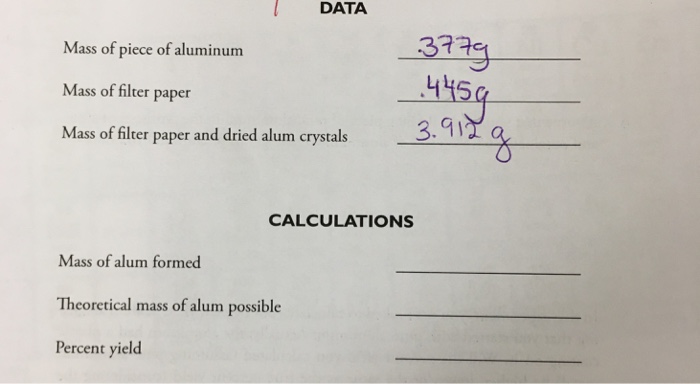 DATA
Mass of piece of aluminum .377g
Mass of filter paper .445g
Mass of filter paper and dried alum crystals 3.912 g
CALCULATIONS
Mass of alum formed
Theoretical mass of alum possible
Percent yield